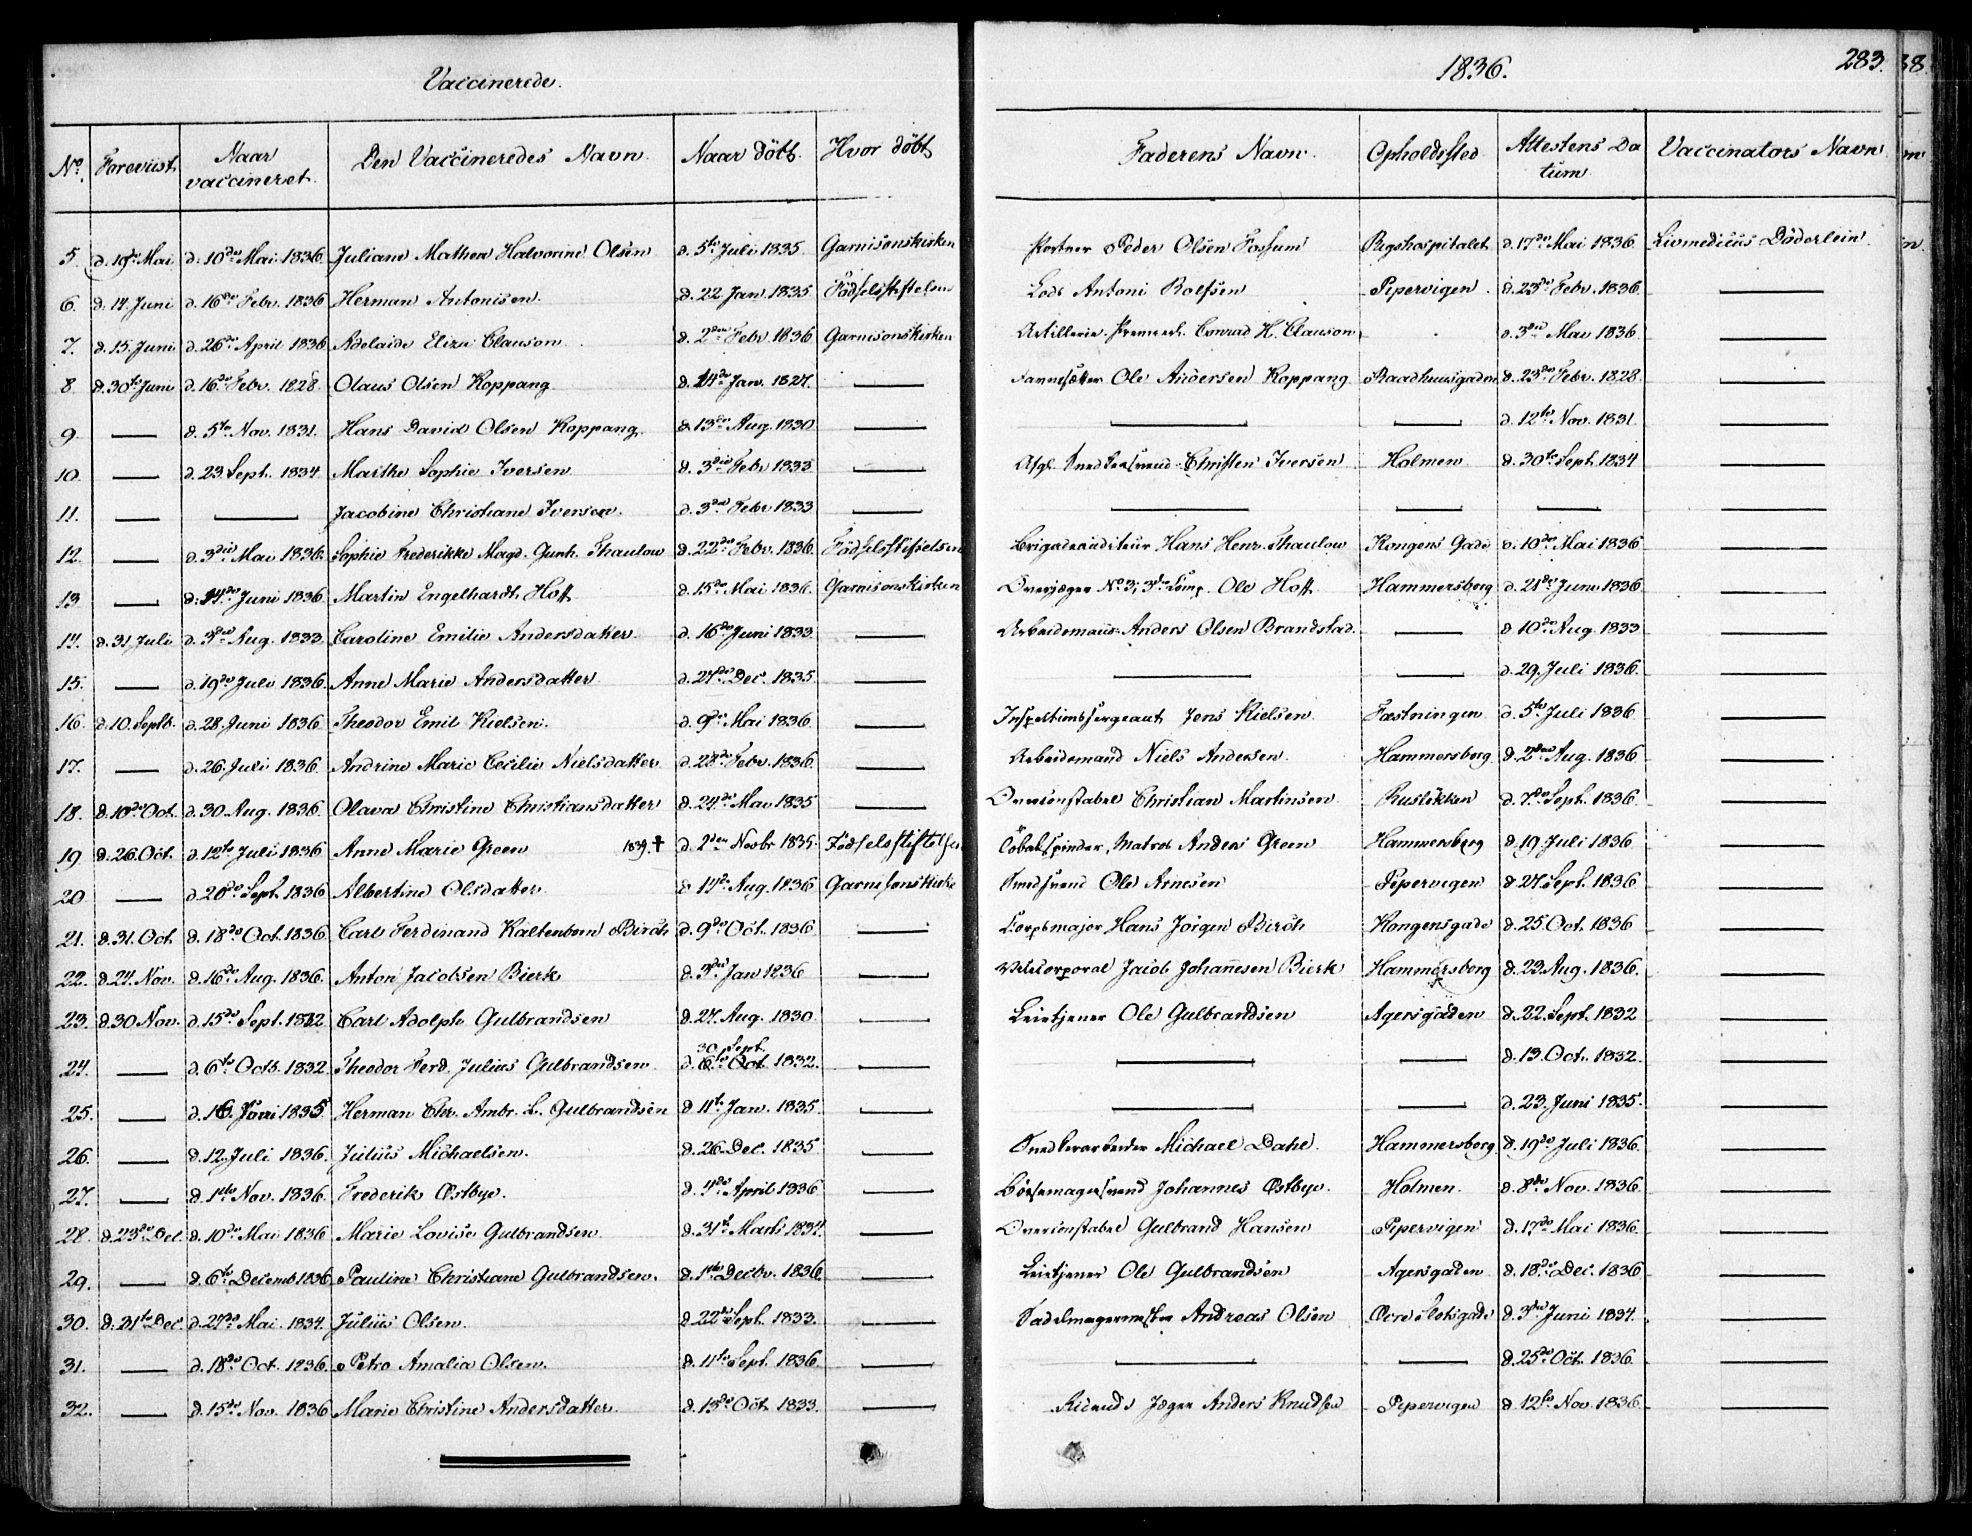 Vaccinerede.
1836.
283.
No. Foreviist Naar vaccineret. Den Vaccineredes Navn. Naar döbt. Hvor döbt Faderens Navn. Opholdssted Attestens Datum Vaccinators Navn
5. d. 19de Mai d. 10de Mai 1836 Juliane Mathea Halvorine Olsen d. 5te Juli 1835. Garnisonskirken Portner Peder Olsen Fossum Rigshospitalet d. 17de Mai 1836. Livmedicus Döderlein.
6. d. 14. Juni d. 16de Febr. 1836 Herman Antonisen. d. 22 Jan. 1835 Födselsstiftelsen Lods Antoni Rolfsen Pipervigen. d. 23de Febr. 1836. —
7. d. 15. Juni d. 26de April 1836 Adelaide Eliza Clauson d. 2den Febr 1836 Garnisonskirken Artillerie Conrad H. Clauson d. 3die Mai 1836. —
8. d. 30te Juni d. 16de Febr. 1828. Olaus Olsen Koppang d. 14de Jan. 1827. — Ole Andersen Koppang Raadhuusgaden d. 23de Febr. 1828. —
9. — d. 5te Nov. 1831. Hans David Olsen Koppang. d. 13de Aug. 1830 — — — d. 12te Nov. 1831. —
10. — d. 23 Sept. 1834 Marthe Sophie Iversen d. 3die Febr 1833 — Afg. Snedkersvend Christen Iversen Holmen d. 30te Sept. 1834 —
11. — — Jacobine Christiane Iversen. d. 3die Febr 1833 — — — — —
12. — d. 3die Mai 1836. Sophie Frederikke Magd. Gunh. Thaulow d. 22de Febr. 1836. Födselsstiftelsen Brigadeauditeur Hans Henr. Thaulow Kongens Gade d. 10de Mai 1836 —
13 — d. 14de Juni 1836 Martin Engelhardt Hoff d. 15de Mai 1836. Garnisonskirken Overjæger No. 3, 3de Comp. Ole Hoff Hammersborg d. 21de Juni 1836 —
14. d. 31 Juli d. 3die Aug. 1833 Caroline Emilie Andersdatter. d. 16de Juni 1833 — Arbeidsmand Anders Olsen Brandstad. — d 10de Aug. 1833 —
15. — d. 19de Juli 1836. Anne Marie Andersdatter d. 27de Dec. 1835 — — — d. 29. Juli 1836. —
16. d. 10. Septb. d. 28. Juni 1836 Theodor Emil Kielsen. d. 9de Mai 1836 — Inspektionssergeant Jens Kielsen Fæstningen d. 5te Juli 1836 —
17. — d. 26. Juli 1836. Andrine Marie Cecilie Nielsdatter d. 28de Febr. 1836 — Arbeidsmand Niels Andersen. Hammersborg d. 2den Aug. 1836 —
18. d. 10de Oct. d. 30 Aug. 1836. Olava Christine Christiansdatter d. 24de Mai 1835 — Overconstabel Christian Martinsen Ruslökken d. 7de Sept. 1836. —
19 d. 26. Oct. d. 12te Juli 1836 Anne Marie Green 1839. † d. 2den Novbr 1835. Födselsstiftelsen Tobakspinder, Matros Anders Green Hammersborg d. 19 Juli 1836 —
20 — d. 20de Sept. 1836 Albertine Olsdatter d 14de Aug. 1836 Garnisonskirke Smedsvend Ole Arnesen Pipervigen d. 27. Sept. 1836 —
21. d. 31. Oct d. 18de Oct. 1836. Carl Ferdinand Kaltenborn Birch d. 9de Oct. 1836 — Corpsmajor Hans Jörgen Birch Kongensgade d. 25 Oct. 1836 —
22. d. 24. Nov. d. 16de Aug. 1836. Anton Jacobsen Bierk d. 3die Jan 1836 — Vicecorporal Jacob Johannesen Bierk Hammersborg d. 23. Aug. 1836. —
23. d. 30 Nov. d. 15de Sept. 1832 Carl Adolph Gulbrandsen d. 27. Aug. 1830 — Leietjener Ole Gulbrandsen Agersgaden d. 22. Sept. 1832 —
24. — d. 6te Octb. 1832. Theodor Ferd. Julius Gulbrandsen 30 Sept. d. 6te Oct. 1832. — — — d. 13. Oct. 1832. —
25. — d. 16 Juni 1835 Herman Chr. Ambr. L. Gulbrandsen d. 11te Jan. 1835. — — — d. 23. Juni 1835. —
26. — d. 12. Juli 1836. Julius Michaelsen. d. 26. Dec. 1835 — Snedkerarbeider Michael Dahl. Hammersborg d. 19de Juli 1836. —
27. — d. 1ste Nov. 1836. Frederik Østbye. d. 4de April 1836 — Bössemagersvend Johannes Østbye. Holmen. d. 8de Nov. 1836. —
28. d. 23de Dec. d. 10de Mai 1836 Marie Lovise Gulbrandsen d. 31te Marts 1834 — Overconstabel Gulbrand Hansen Pipervigen d. 17de Mai 1836. —
29. — d. 6te Decemb 1836 Pauline Christiane Gulbrandsen. d. 1ste Decbr. 1836 — Leietjener Ole Gulbrandsen Agersgaden d. 18de Dec. 1836 —
30. d. 31te Dec. d. 27de Mai 1834. Julius Olsen. d. 22de Sept. 1833. — Sadelmagermester Andreas Olsen Øvre Slotsgade d. 3die Juni 1834. —
31. — d. 18de Oct. 1836. Petra Amalia Olsen. d. 11te Sept. 1836. — — — d. 25de Oct. 1836. —
32. — d. 15de Nov. 1836 Marie Christine Andersdatter. d. 13de Oct. 1833. — Ridende Jæger Anders Knudsen Pipervigen d. 12te Nov. 1836. —